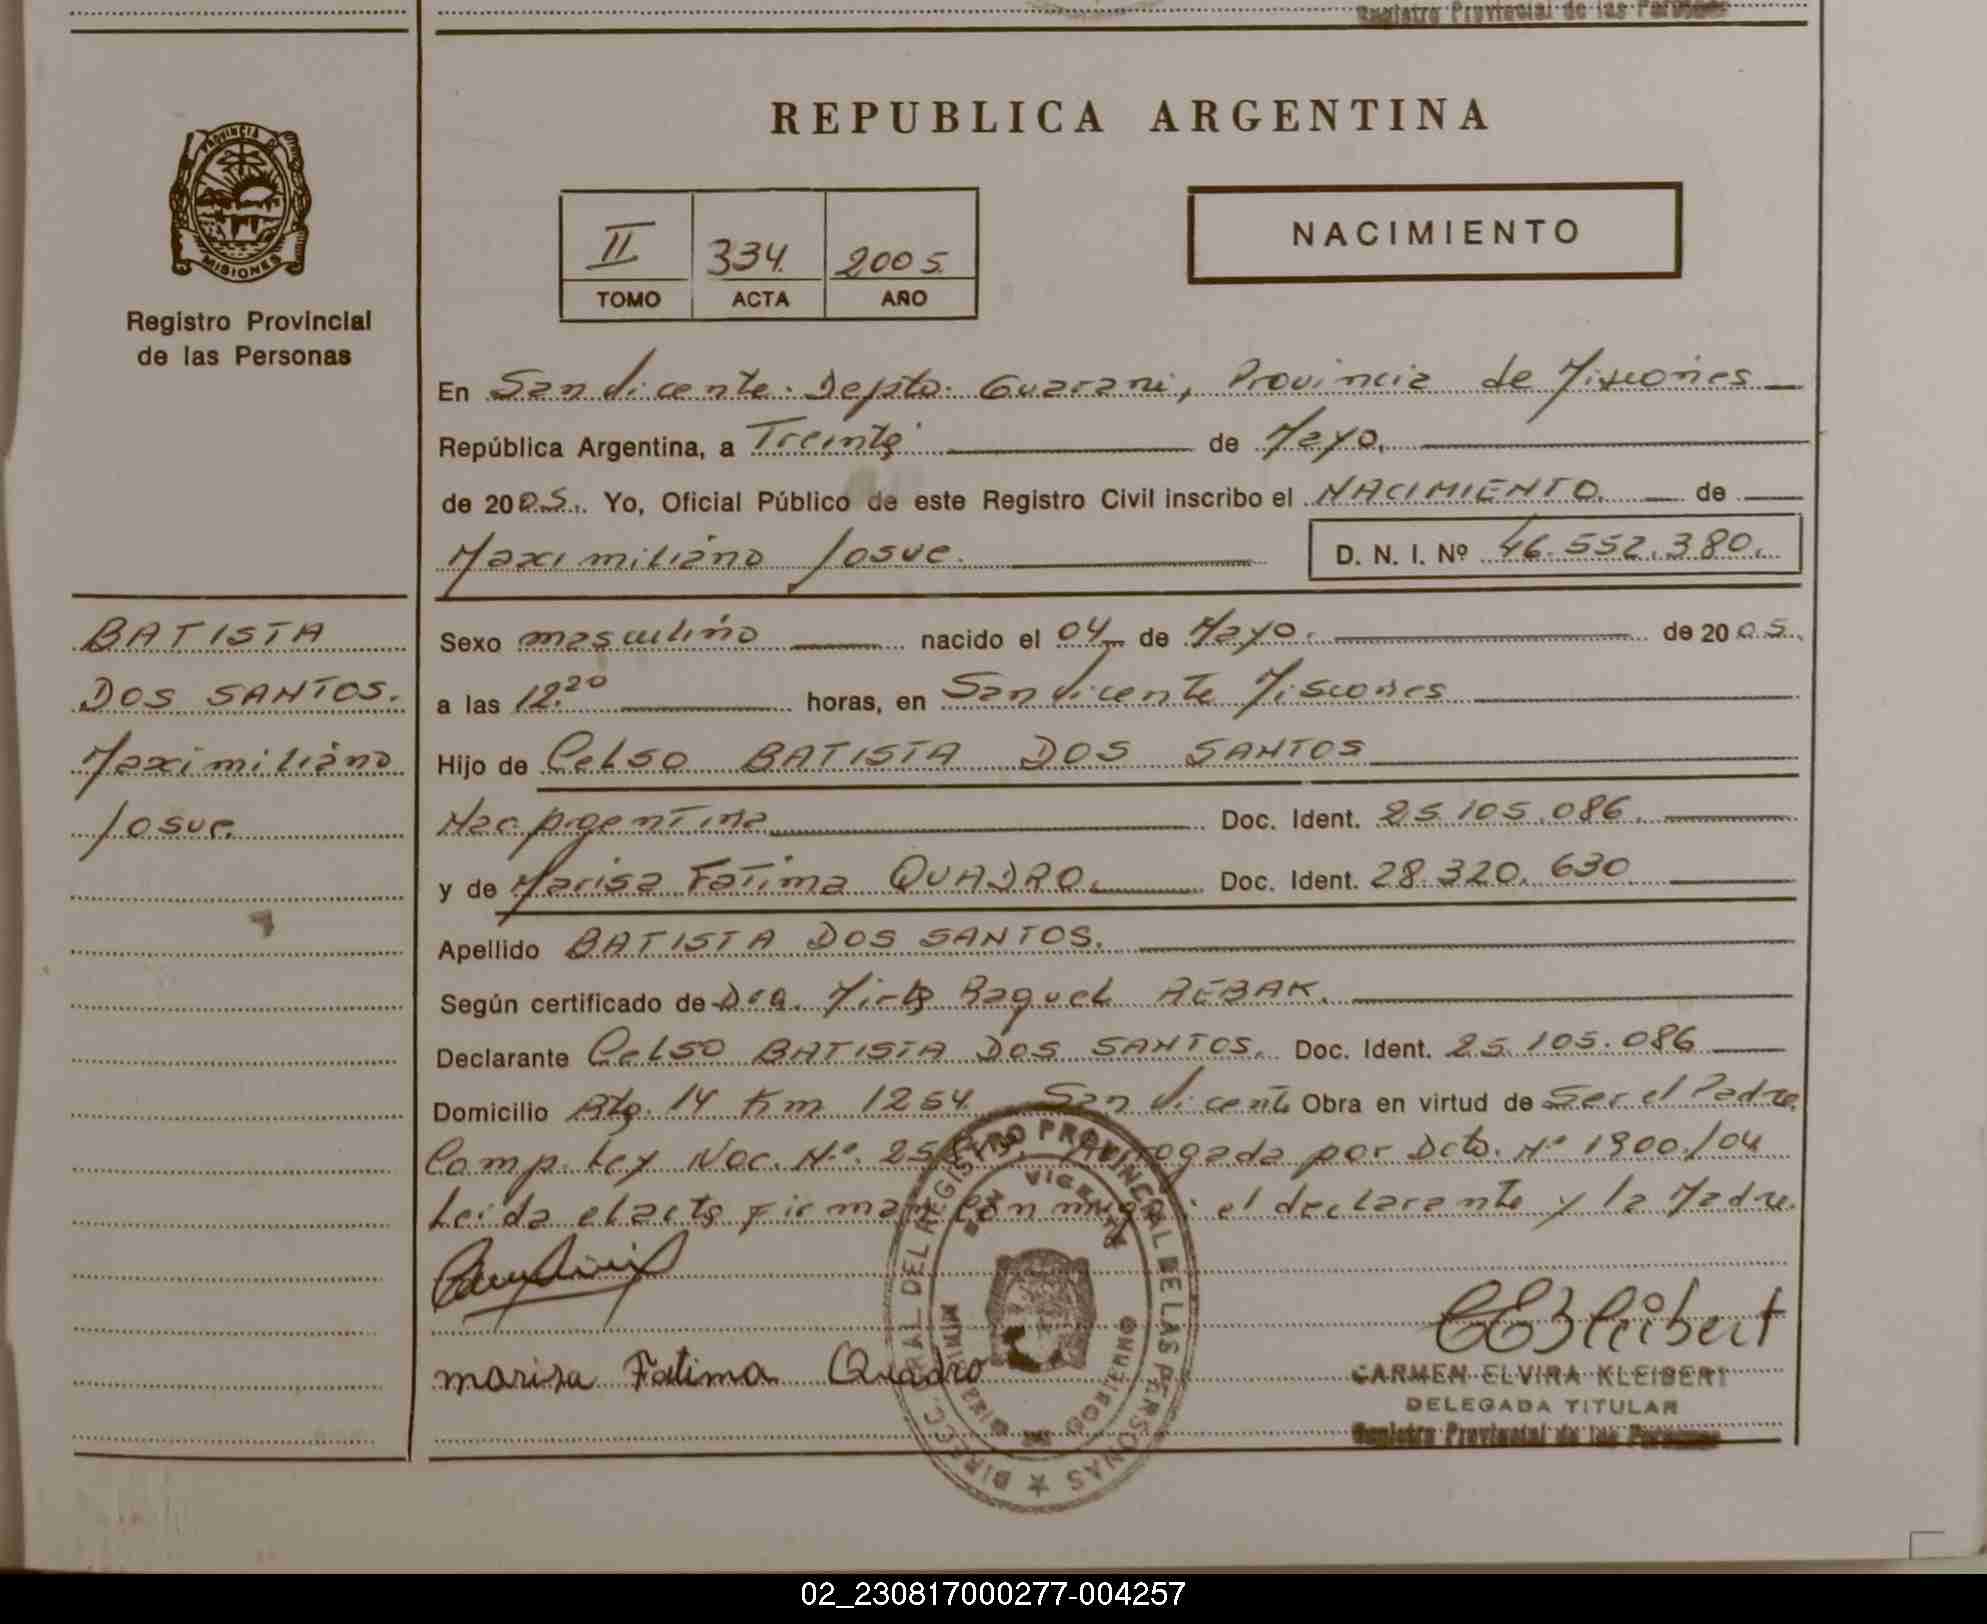 Registro Provincial de las Personas
REPUBLICA ARGENTINA
PROVINCIA DE
MISIONES
Registro Provincial
de las Personas
II 334. 2005.
TOMO ACTA AÑO
NACIMIENTO
En San Vicente. Depto. Guarani, Provincia de Misiones
República Argentina, a Treinta de Mayo.
de 2005. Yo, Oficial Público de este Registro Civil inscribo el NACIMIENTO. de
Maximiliano Josue. D. N. I. Nº 46.552.380.
BATISTA
DOS SANTOS.
Maximiliano
Josue.
Sexo masculino nacido el 04 de Mayo. de 2005.
a las 12.20 horas, en San Vicente Misiones
Hijo de Celso BATISTA DOS SANTOS
Nac. Argentina Doc. Ident. 25.105.086.
y de Marisa Fatima QUADRO. Doc. Ident. 28.320.630.
Apellido BATISTA DOS SANTOS.
Según certificado de Dra. Mirta Raquel REBAK.
Declarante Celso BATISTA DOS SANTOS. Doc. Ident. 25.105.086
Domicilio Rta. 14 Km 1254. San Vicente Obra en virtud de Ser el Padre.
Comp. Ley Nac. Nº. por Dcto. Nº 1900./04
Leida el acta firman conmigo: el declarante y la Madre.
marisa Fatima Quadro
DIRECC. GRAL. DEL REGISTRO PROVINCIAL DE LAS PERSONAS
SAN VICENTE
CEKleibert
CARMEN ELVIRA KLEIBERT
DELEGADA TITULAR
Registro Provincial de las Personas
02_230817000277-004257